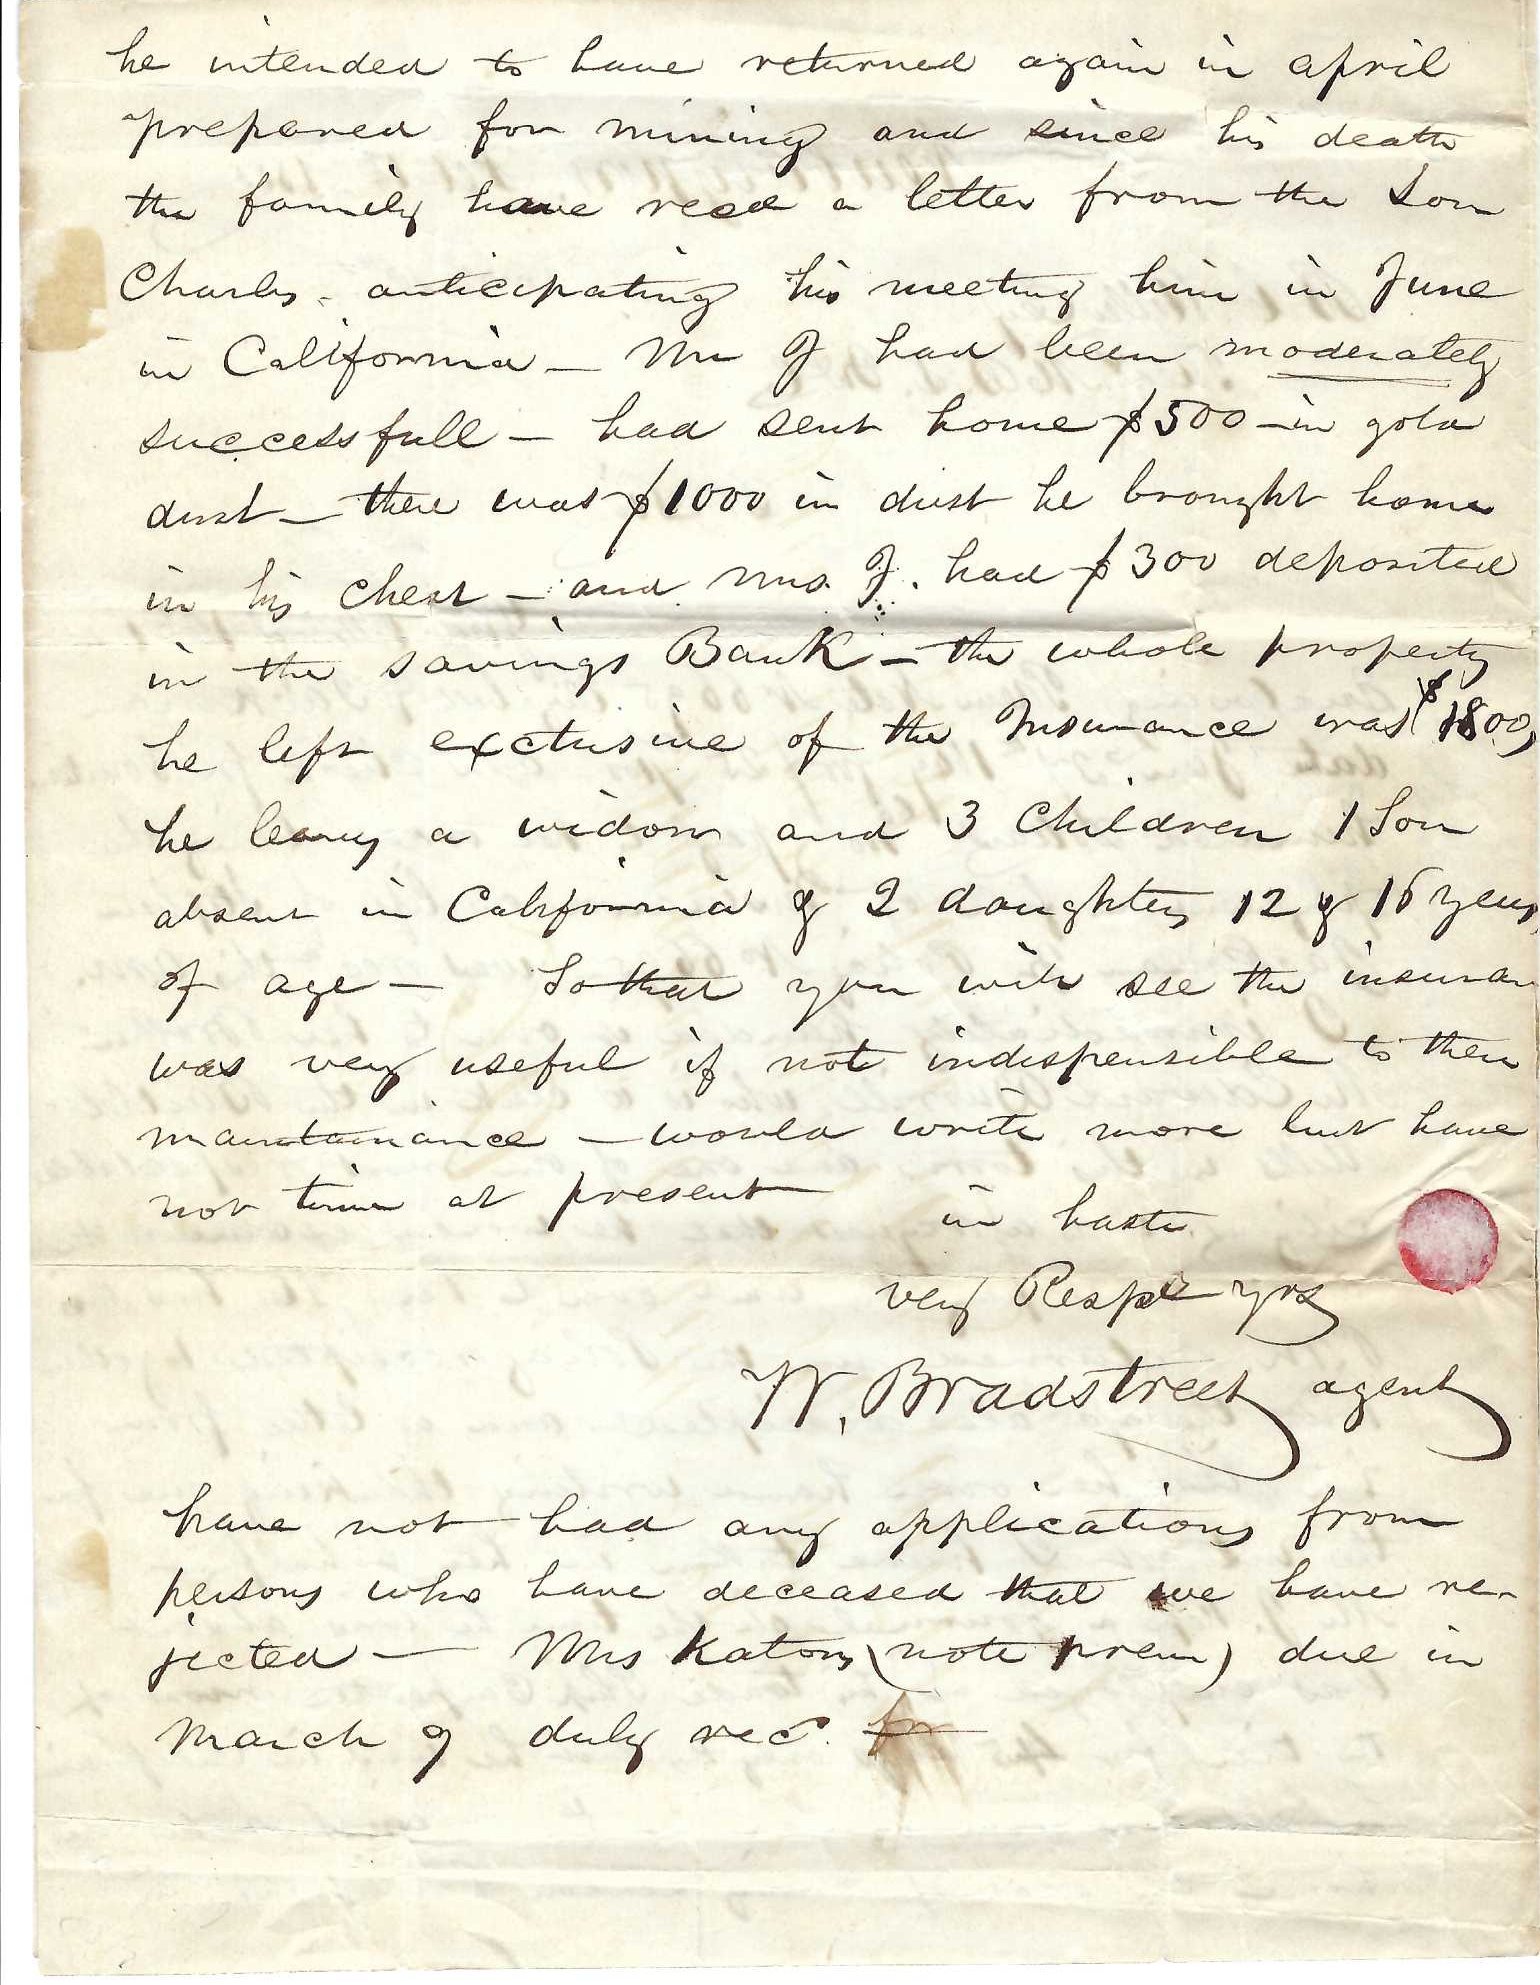 he intended to have returned again in april
prepared for mining and since his death
the family have recd a letter from the Son
Charles - anticipating his meeting him in June
in California - Mr J had been moderately
successfull - had sent home $500 - in gold
dust - there was $1000 in dust he brought home
in his chest - and Mrs. J. had $300 deposited
in the savings Bank - the whole property
he left exclusive of the Insurance was $1800,
he leaves a widow and 3 Children 1 Son
absent in California & 2 daughters 12 & 16 years
of age - So that you will see the insuran
was very useful if not indispensible to their
maintainance - would write more but have
not time at present
in haste
very Respt yrs
W. Bradstreet agent
have not had any applications from
persons who have deceased that we have re-
jected - Mrs Katons (note prem) due in
March 9 duly recd. for